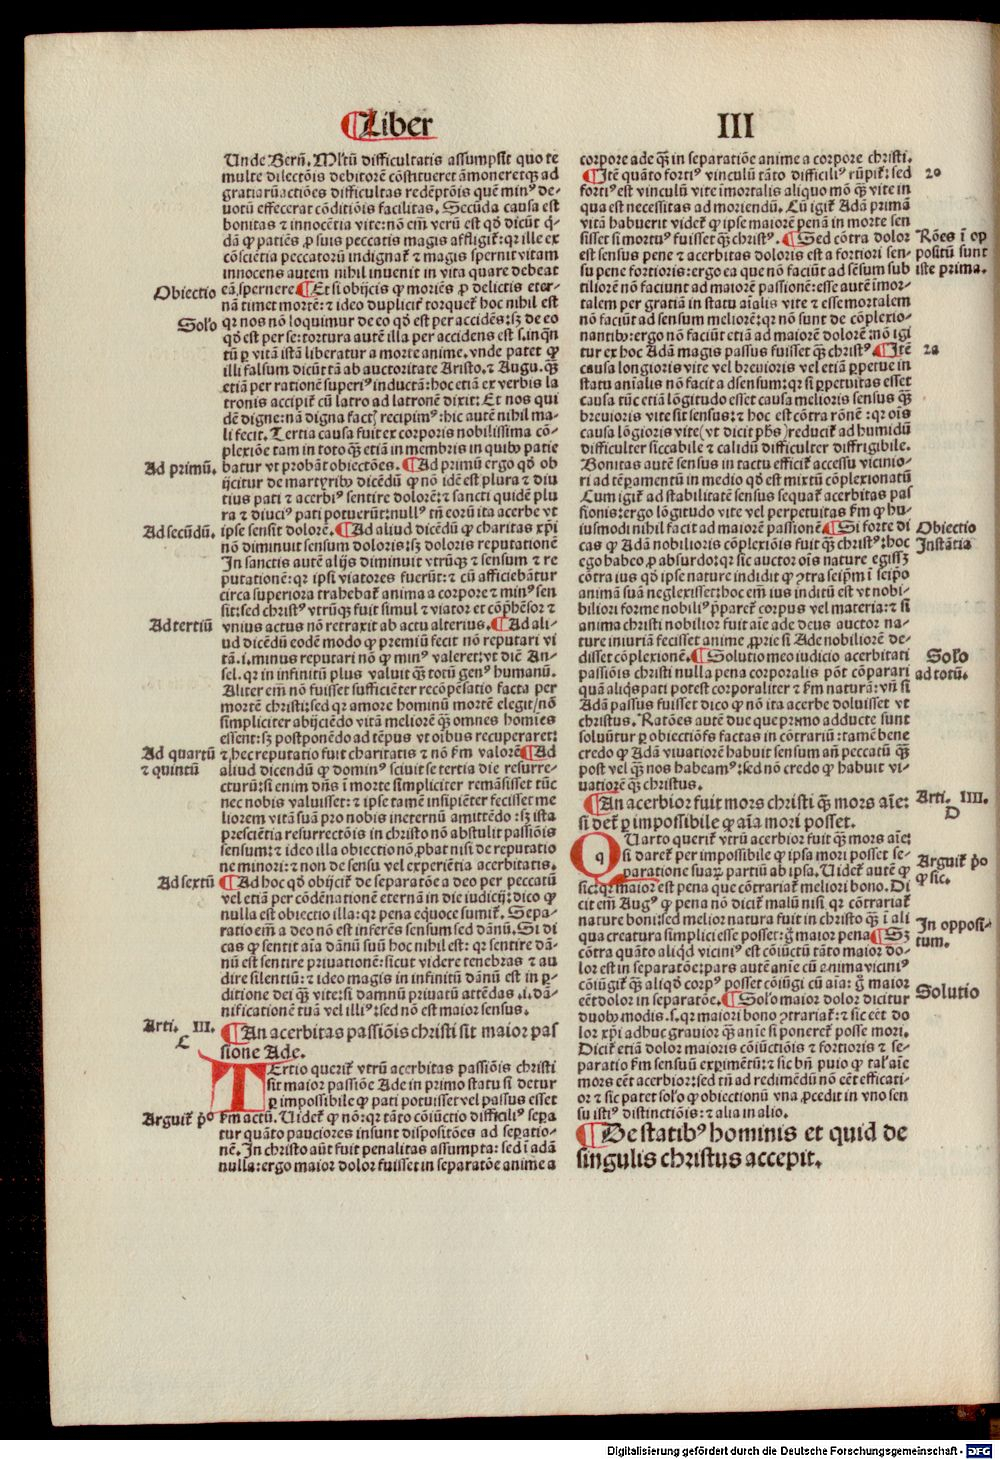 ¶Liber
III
Unde Berñ. Mltũ difficultatis assumpsit quo te
multe dilectõis debitorẽ cõstitueret ãmoneretqꝫ ad
gratiarũactiões difficultas redẽptõis quẽ minꝰ de-
uotũ effecerat cõditiõis facilitas. Secũda causa est
bonitas ⁊ innocẽtia vite: nõ em̃ verũ est qõ dicũt q̇-
dã ꝙ patiẽs ꝓ suis peccatis magis affligit᷑: qr ille ex
cõsciẽtia peccatorũ indignat᷑ ⁊ magis spernit vitam
innocens autem nihil inuenit in vita quare debeat
Obiectio
eã spernere ¶Et si obijcis ꝙ moriẽs ꝓ delictis eter-
nã timet mortẽ: ⁊ ideo duplicit᷑ torquet᷑ hoc nihil est
Solo
qr nos nõ loquimur de eo qõ est per accidẽs: sꝫ de eo
qõ est per se: tortura autẽ illa per accidens est s. inqñ
tũ ꝑ vitã istã liberatur a morte anime. vnde patet ꝙ
illi falsum dicũt tã ab auctoritate Aristo. ⁊ Augu. qꝫ̃
etiã per rationẽ superiꝰ inductã: hoc etiã ex verbis la
tronis accipit᷑ cũ latro ad latronẽ dixit: Et nos qui
dẽ digne: nã digna factꝭ recipimꝰ: hic autẽ nihil ma-
li fecit. Tertia causa fuit ex corporis nobilissima cõ-
plexiõe tam in toto qꝫ̃ etiã in membris in quibꝰ patie
Ad primũ.
batur vt probãt obiectões. ¶Ad primũ ergo qõ ob
ijcitur de martyribꝰ dicẽdũ ꝙ nõ idẽ est plura ⁊ diu
tius pati ⁊ acerbiꝰ sentire dolorẽ: ⁊ sancti quidẽ plu
ra ⁊ diuciꝰ pati potuerũt: nullꝰ tñ eorũ ita acerbe vt
Ad secũdũ.
ipse sensit dolorẽ. ¶Ad aliud dicẽdũ ꝙ charitas xp̃i
nõ diminuit sensum doloris: sꝫ doloris reputationẽ
In sanctis autẽ alijs diminuit vtrũqꝫ ⁊ sensum ⁊ re
putationẽ: qr ipsi viatores fuerũt: ⁊ cũ afficiebãtur
circa superiora trahebat᷑ anima a corpore ⁊ minꝰ sen
sit: sed christꝰ vtrũqꝫ fuit simul ⁊ viator et cõp̃hẽsor ⁊
Ad tertiũ
vnius actus nõ retraxit ab actu alterius. ¶Ad ali-
ud dicẽdũ eodẽ modo ꝙ premiũ fecit nõ reputari vi
tã. i. minus reputari nõ ꝙ minꝰ valeret: vt dicẽ An-
sel. qr in infinitũ plus valuit qꝫ̃ totũ genꝰ humanũ.
Aliter em̃ nõ fuisset sufficiẽter recõpẽsatio facta per
mortẽ christi: sed qr amore hominũ mortẽ elegit/nõ
simpliciter abijciẽdo vitã meliorẽ qꝫ̃ omnes homĩes
essent: sꝫ postponẽdo ad tẽpus vt oĩbus recuperaret:
Ad quartũ
⁊ hec reputatio fuit charitatis ⁊ nõ fm̃ valorẽ ¶Ad
⁊ quintũ
aliud dicendũ ꝙ dominꝰ sciuit se tertia die resurre-
cturũ: si enim dñs ĩ morte simpliciter remãsisset tũc
nec nobis valuisset: ⁊ ipse tamẽ insipiẽter fecisset me
liorem vitã suã pro nobis ineternũ amittẽdo: sꝫ ista
presciẽtia resurrectõis in christo nõ abstulit passiõis
sensum: ⁊ ideo illa obiectio nõ ꝓbat nisi de reputatio
ne minori: ⁊ non de sensu vel experiẽtia acerbitatis.
Ad sextũ
¶Ad hoc qõ obijcit᷑ de separatõe a deo per peccatũ
vel etiã per cõdẽnationẽ eternã in die iudicij: dico ꝙ
nulla est obiectio illa: qr pena eq̇uoce sumit᷑. Sepa-
ratio em̃ a deo nõ est inferẽs sensum sed dãnũ. Si di
cas ꝙ sentit aĩa dãnũ suũ hoc nihil est: qr sentire dã-
nũ est sentire priuationẽ: sicut videre tenebras ⁊ au
dire silentiũ: ⁊ ideo magis in infinitũ dãnũ est in ꝑ-
ditione dei qꝫ̃ vite: si damnũ priuatũ attẽdas .i. dã-
nificationẽ tuã vel illiꝰ: sed nõ est maior sensus.
Arti. III.
C
¶An acerbitas passiõis christi sit maior pas
sione Ade.
TErtio querit᷑ vtrũ acerbitas passiõis christi
sit maior passiõe Ade in primo statu si detur
ꝑ impossibile ꝙ pati potuisset vel passus esset
Arguit᷑ p̊
fm̃ actũ. Uidet᷑ ꝙ nõ: qr tãto cõiũctio difficiliꝰ sepa
tur quãto pauciores insunt dispositões ad sepatio-
nẽ. In christo aũt fuit penalitas assumpta: sed ĩ adã
nulla: ergo maior dolor fuisset in separatõe anime a
corpore ade qꝫ̃ in separatiõe anime a corpore christi.
2º
¶Itẽ quãto fortiꝰ vinculũ tãto difficiliꝰ rũpit᷑: sed
fortiꝰ est vinculũ vite ĩmortalis aliquo mõ qꝫ̃ vite in
qua est necessitas ad moriendũ. Cũ igit᷑ Adã primã
vitã habuerit videt᷑ ꝙ ipse maiorẽ pena in morte sen
Rões ĩ op
sisset si mortuꝰ fuisset qꝫ̃ christꝰ. ¶Sed cõtra dolor
positũ sunt
est sensus pene ⁊ acerbitas doloris est a fortiori sen-
iste prima.
su pene fortioris: ergo ea que nõ faciũt ad sẽsum sub
tiliorẽ nõ faciunt ad maiorẽ passionẽ: esse autẽ ĩmor-
talem per gratiã in statu aĩalis vite ⁊ esse mortalem
nõ faciũt ad sensum meliorẽ: qr nõ sunt de cõplexio-
nantibꝰ: ergo nõ faciũt etiã ad maiorẽ dolorẽ: nõ igi
2a
tur ex hoc Adã magis passus fuisset qꝫ̃ christꝰ. ¶Itẽ
causa longioris vite vel breuioris vel etiã ꝑpetue in
statu aĩalis nõ facit a dsensum: qr si ꝑpetuitas esset
causa tũc etiã lõgitudo esset causa melioris sensus qꝫ̃
breuioris vite sit sensus: ⁊ hoc est cõtra rõnẽ: qr oĩs
causa lõgioris vite (vt dicit ph̃s) reducit᷑ ad humidũ
difficulter siccabile ⁊ calidũ difficulter diffrigibile.
Bonitas autẽ sensus in tactu efficit᷑ accessu vicinio-
ri ad tẽꝑamentũ in medio qõ est mixtũ cõplexionatũ
Cum igit᷑ ad stabilitatẽ sensus sequat᷑ acerbitas pas
sionis: ergo lõgitudo vite vel perpetuitas fm̃ ꝙ hu-
Obiectio
iusmodi nihil facit ad maiorẽ passionẽ ¶Si forte di
Instãtia
cas ꝙ Adã nobilioris cõplexiõis fuit qꝫ̃ christꝰ: hoc
ego habeo ꝓ absurdo: qr sic auctor oĩs nature egissꝫ
cõtra ius qõ ipse nature indidit ꝙ ↄtra seip̃m ĩ seip̃o
animã suã neglexisset: hoc em̃ ius inditũ est vt nobi-
biliori forme nobiliꝰ p̃paret᷑ corpus vel materia: ⁊ si
anima christi nobilior fuit aĩe ade deus auctor na-
ture iniuriã fecisset anime ꝓprie si Ade nobiliorẽ de-
Solo
disset cõplexionẽ. ¶Solutio meo iudicio acerbitati
ad totũ.
passiõis christi nulla pena corporalis põt cõparari
quã aliq̇s pati potest corporaliter ⁊ fm̃ naturã: vñ si
Adã passus fuisset dico ꝙ nõ ita acerbe doluisset vt
christus. Ratões autẽ due que primo adducte sunt
soluũtur ꝑ obiectiões factas in cõtrariũ: tamẽ bene
credo ꝙ Adã viuatiorẽ habuit sensum añ peccatũ qꝫ̃
post vel qꝫ̃ nos habeamꝰ: sed nõ credo ꝙ habuit vi-
uatiorẽ qꝫ̃ christus.
Arti. IIII.
D
¶An acerbior fuit mors christi qꝫ̃ mors aĩe:
si det᷑ ꝑ impossibile ꝙ aĩa mori posset.
QUarto querit᷑ vtrũ acerbior fuit qꝫ̃ mors aĩe:
si daret᷑ per impossibile ꝙ ipsa mori posset se-
Arguit᷑ p̊o
paratione suaꝝ partiũ ab ipsa. Uidet᷑ autẽ ꝙ
ꝙ sic.
sic: qr maior est pena que cõtrariat᷑ meliori bono. Di
cit em̃ Augꝰ ꝙ pena nõ dicit᷑ malũ nisi qr cõtrariat᷑
nature boni: sed melior natura fuit in christo qꝫ̃ ĩ ali
In opposi-
qua creatura simplici esse posset: g̃ maior pena ¶Sꝫ
tum.
cõtra quãto aliq̇d viciniꝰ est cõiũctũ tãto maior do-
lor est in separatõe: pars autẽ anĩe cũ anima viciniꝰ
cõiũgit᷑ qꝫ̃ aliqõ corpꝰ posset cõiũgi cũ aĩa: g̃ maior
Solutio
eẽt dolor in separatõe. ¶Solo maior dolor dicitur
duobꝰ modis. s. qr maiori bono ↄtrariat᷑: ⁊ sic eẽt do
lor xp̃i adhuc grauior qꝫ̃ anĩe si poneret᷑ posse mori.
Dicit᷑ etiã dolor maioris cõiũctiõis ⁊ fortioris ⁊ se-
paratio fm̃ sensuũ experimẽtũ: ⁊ sic bñ puio ꝙ talꝭ aĩe
mors eẽt acerbior: sed tñ ad redimẽdũ nõ eẽt efficati-
or ⁊ sic patet solo ꝙ obiectionũ vna ꝓcedit in vno sen
su istiꝰ distinctiõis: ⁊ alia in alio.
¶De statibꝰ hominis et quid de
singulis christus accepit.
Digitalisierung gefördert durch die Deutsche Forschungsgemeinschaft - DFG